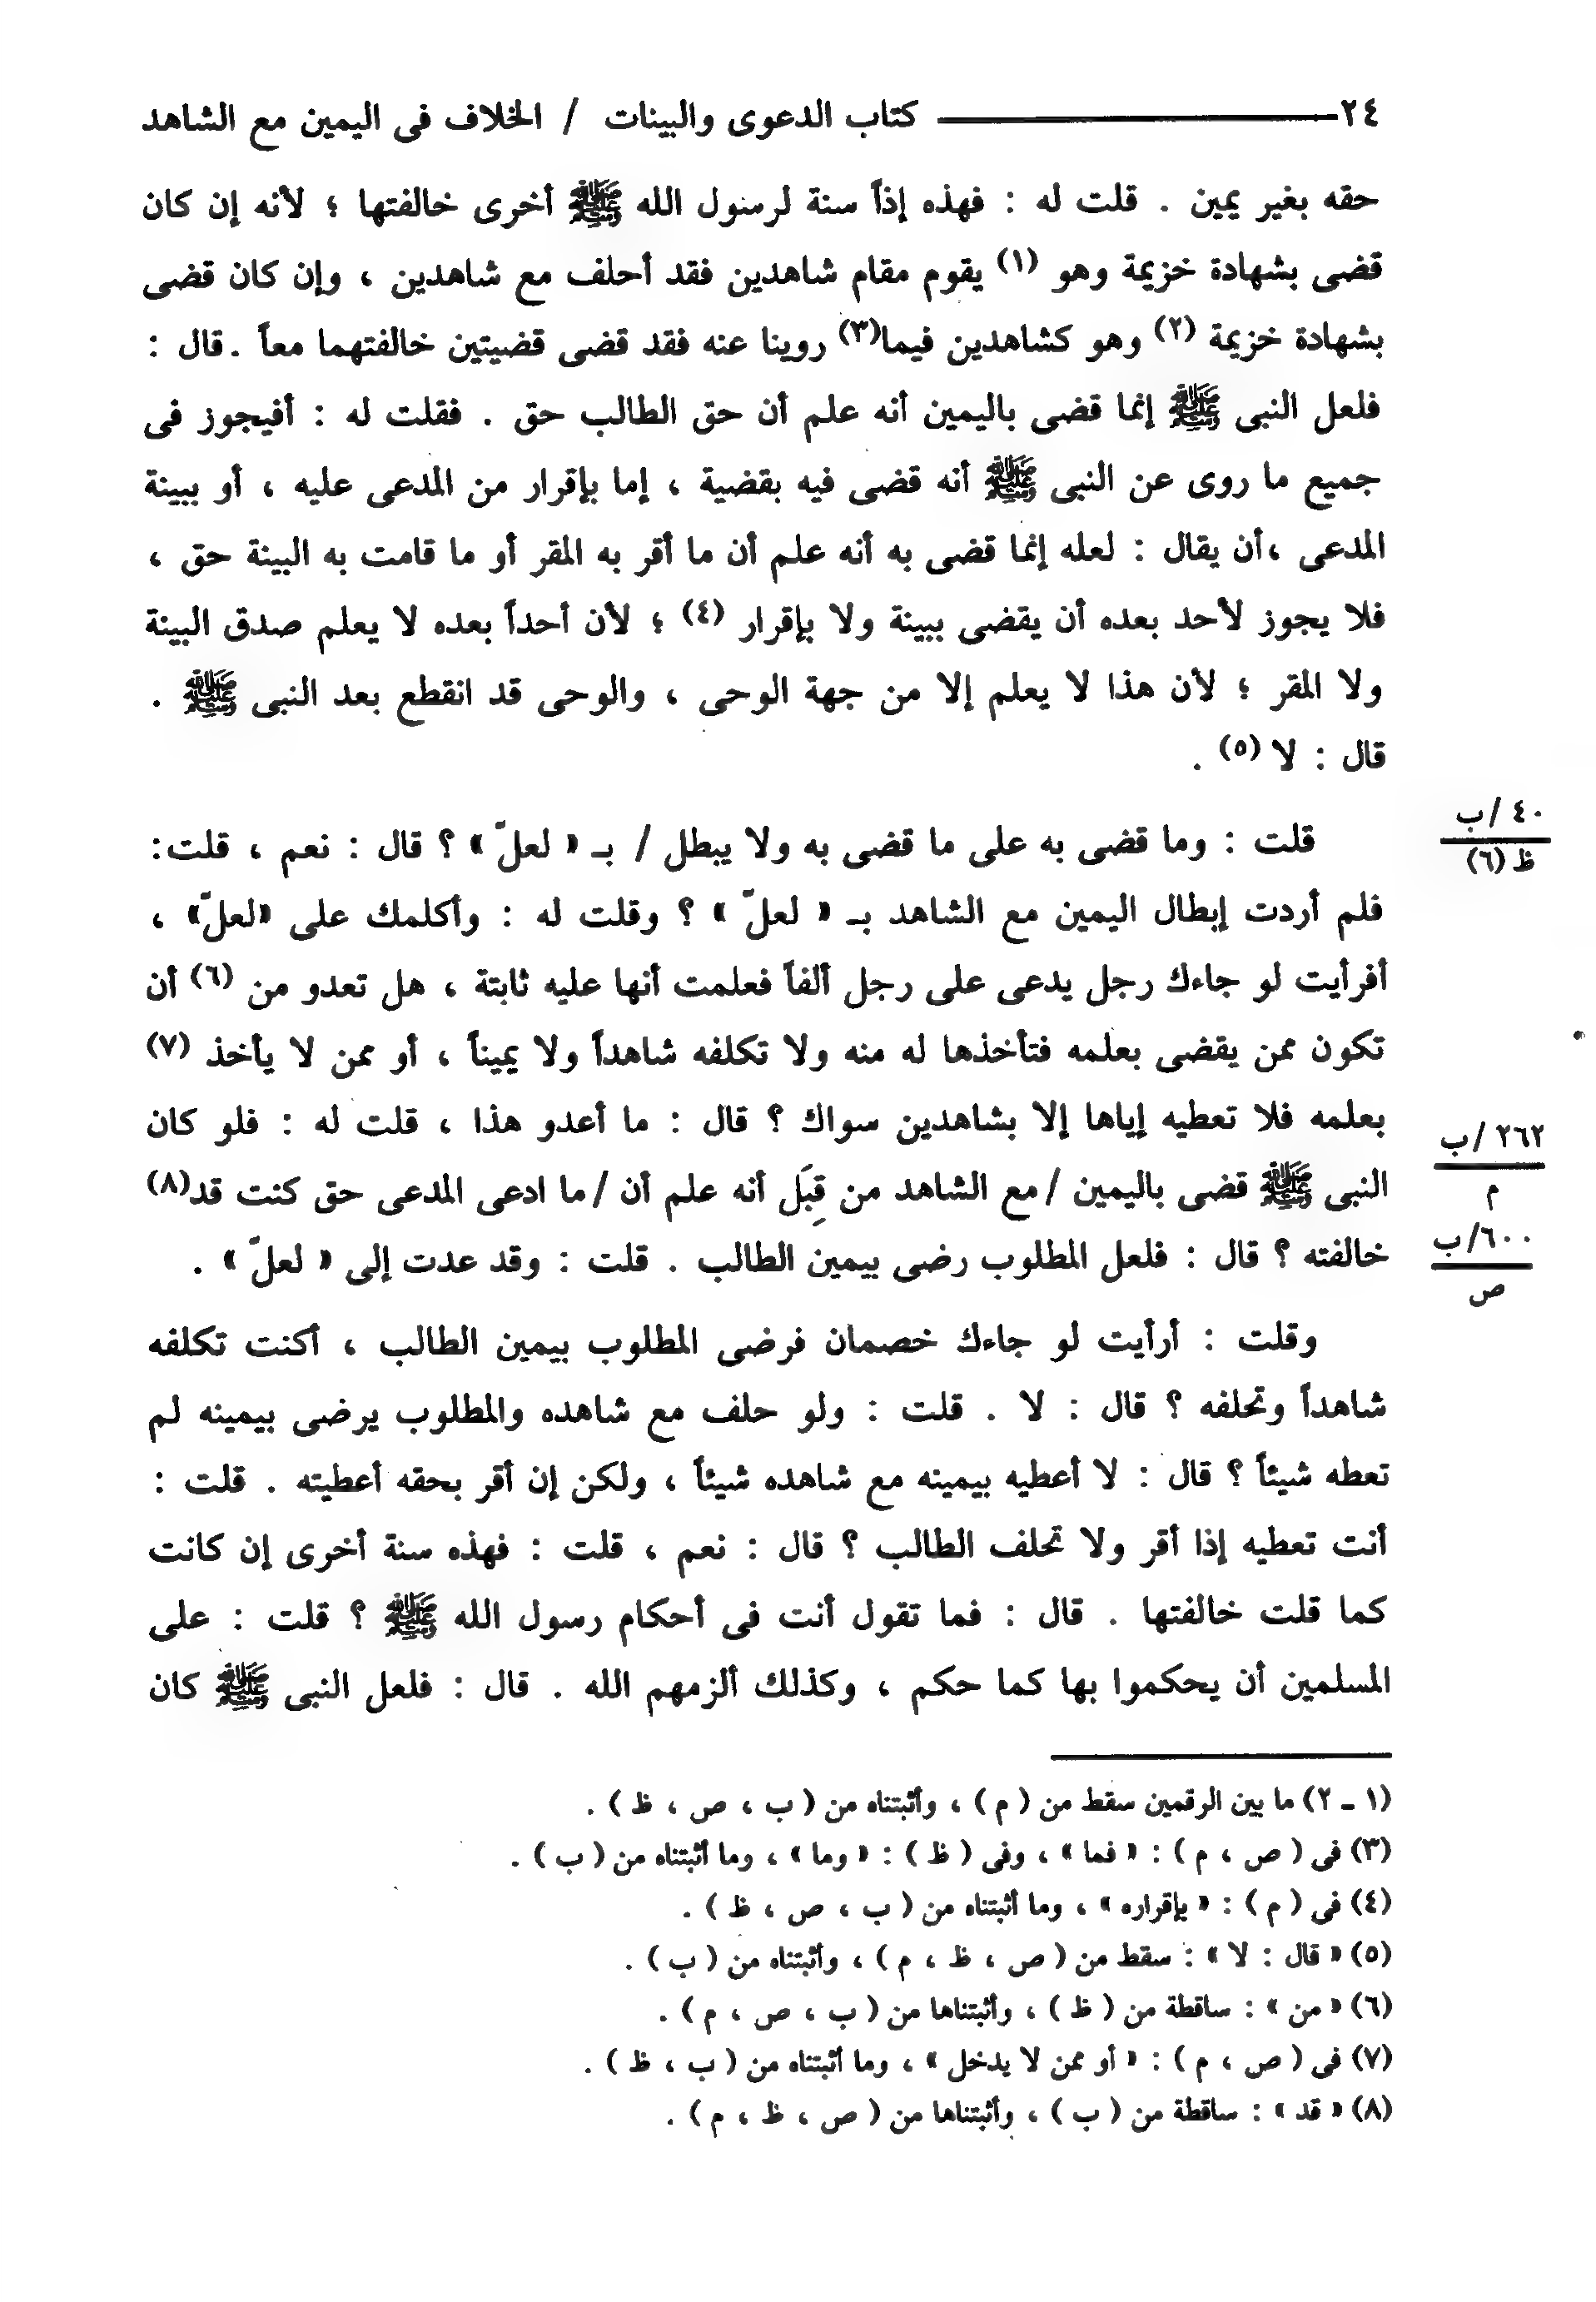 ٢٤ ـــــــــــــــ كتاب الدعوى والبينات / الخلاف فى اليمين مع الشاهد
حقه بغير يمين . قلت له : فهذه إذاً سنة لرسول الله ﷺ أخرى خالفتها ؛ لأنه إن كان
قضى بشهادة خزيمة وهو (١) يقوم مقام شاهدين فقد أحلف مع شاهدين ، وإن كان قضى
بشهادة خزيمة (٢) وهو كشاهدين فيما(٣) روينا عنه فقد قضى قضيتين خالفتهما معاً . قال :
فلعل النبى ﷺ إنما قضى باليمين أنه علم أن حق الطالب حق . فقلت له : أفيجوز فى
جميع ما روى عن النبى ﷺ أنه قضى فيه بقضية ، إما بإقرار من المدعى عليه ، أو ببينة
المدعى ،أن يقال : لعله إنما قضى به أنه علم أن ما أقر به المقر أو ما قامت به البينة حق ،
فلا يجوز لأحد بعده أن يقضى ببينة ولا بإقرار (٤) ؛ لأن أحداً بعده لا يعلم صدق البينة
ولا المقر ؛ لأن هذا لا يعلم إلا من جهة الوحى ، والوحى قد انقطع بعد النبى ﷺ .
قال : لا (٥) .
قلت : وما قضى به على ما قضى به ولا يبطل / بـ « لعلّ » ؟ قال : نعم ، قلت:
٤٠ /ب
ظ (٦)
فلم أردت إبطال اليمين مع الشاهد بـ « لعلّ » ؟ وقلت له : وأكلمك على «لعلّ» ،
أفرأيت لو جاءك رجل يدعى على رجل ألفاً فعلمت أنها عليه ثابتة ، هل تعدو من (٦) أن
تكون ممن يقضى بعلمه فتأخذها له منه ولا تكلفه شاهداً ولا يميناً ، أو ممن لا يأخذ (٧)
بعلمه فلا تعطيه إياها إلا بشاهدين سواك ؟ قال : ما أعدو هذا ، قلت له : فلو كان
٢٦٢ /ب
م
النبى ﷺ قضى باليمين /مع الشاهد من قِبَل أنه علم أن /ما ادعى المدعى حق كنت قد(٨)
٦٠٠/ب
ص
خالفته ؟ قال : فلعل المطلوب رضى بيمين الطالب . قلت : وقد عدت إلى « لعلّ » .
وقلت : أرأيت لو جاءك خصمان فرضى المطلوب بيمين الطالب ، أكنت تكلفه
شاهداً وتحلفه ؟ قال : لا . قلت : ولو حلف مع شاهده والمطلوب يرضى بيمينه لم
تعطه شيئاً ؟ قال : لا أعطيه بيمينه مع شاهده شيئاً ، ولكن إن أقر بحقه أعطيته . قلت :
أنت تعطيه إذا أقر ولا تحلف الطالب ؟ قال : نعم ، قلت : فهذه سنة أخرى إن كانت
كما قلت خالفتها . قال : فما تقول أنت فى أحكام رسول الله ﷺ ؟ قلت : على
المسلمين أن يحكموا بها كما حكم ، وكذلك ألزمهم الله . قال : فلعل النبى ﷺ كان
(١ ـ ٢) ما بين الرقمين سقط من ( م ) ، وأثبتناه من ( ب ، ص ، ظ ) .
(٣) فى ( ص ، م ) : « فما » ، وفى ( ظ ) : « وما » ، وما أثبتناه من ( ب ) .
(٤) فى ( م ) : « بإقراره » ، وما أثبتناه من ( ب ، ص ، ظ ) .
(٥) « قال : لا » : سقط من ( ص ، ظ ، م ) ، وأثبتناه من ( ب ) .
(٦) « من » : ساقطة من ( ظ ) ، وأثبتناها من ( ب ، ص ، م ) .
(٧) فى ( ص ، م ) : « أو ممن لا يدخل » ، وما أثبتناه من ( ب ، ظ ) .
(٨) « قد » : ساقطة من ( ب ) ، وأثبتناها من ( ص ، ظ ، م ) .